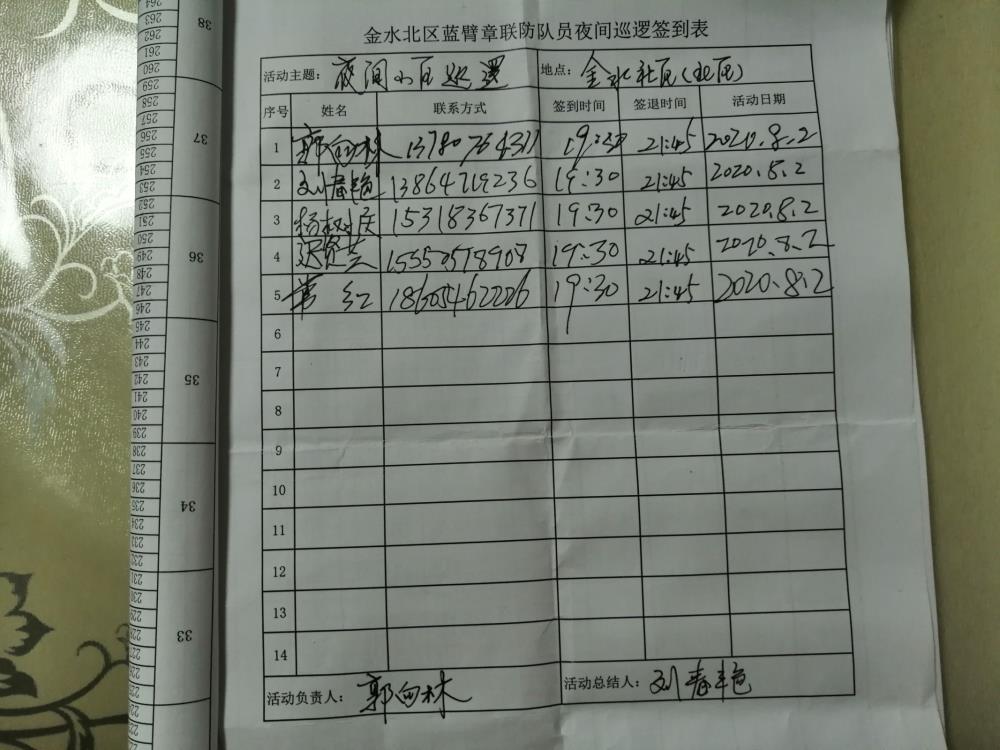 金水北区蓝臂章联防队员夜间巡逻签到表
活动主题: 夜间小区巡逻 地点: 金水社区(北区)
序号 姓名 联系方式 签到时间 签退时间 活动日期
1 郭向林 13780764311 19:30 21:45 2020.8.2
2 刘春艳 13864719236 19:30 21:45 2020.8.2
3 杨树庆 15318367371 19:30 21:45 2020.8.2
4 15550578908 19:30 21:45 2020.8.2
5 常红 18605462226 19:30 21:45 2020.8.2
6
7
8
9
10
11
12
13
14
活动负责人: 郭向林 活动总结人: 刘春艳
38
37
36
35
34
33
264
263
262
261
260
259
258
257
256
255
254
253
252
251
250
249
248
247
246
245
244
243
242
241
240
239
238
237
236
235
234
233
232
231
230
229
228
227
226
225